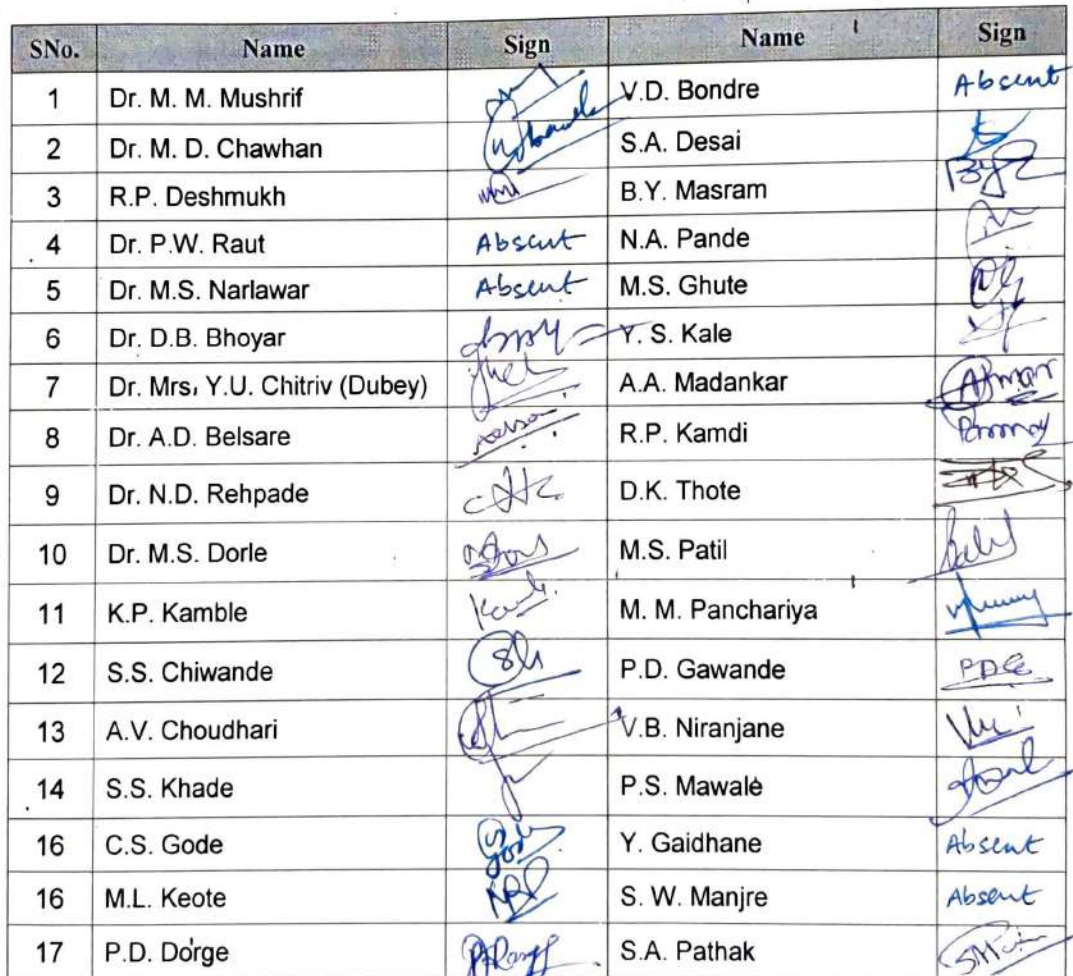 SNo. Name Sign Name Sign
1 Dr. M. M. Mushrif V.D. Bondre Absent
2 Dr. M. D. Chawhan S.A. Desai
3 R.P. Deshmukh B.Y. Masram
4 Dr. P.W. Raut Absent N.A. Pande
5 Dr. M.S. Narlawar Absent M.S. Ghute
6 Dr. D.B. Bhoyar Y. S. Kale
7 Dr. Mrs. Y.U. Chitriv (Dubey) A.A. Madankar
8 Dr. A.D. Belsare R.P. Kamdi
9 Dr. N.D. Rehpade D.K. Thote
10 Dr. M.S. Dorle M.S. Patil
11 K.P. Kamble M. M. Panchariya
12 S.S. Chiwande P.D. Gawande
13 A.V. Choudhari V.B. Niranjane
14 S.S. Khade P.S. Mawale
16 C.S. Gode Y. Gaidhane Absent
16 M.L. Keote S. W. Manjre Absent
17 P.D. Dorge S.A. Pathak